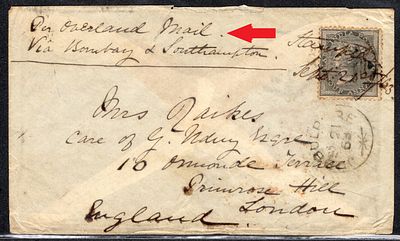 Per Overland Mail.
Via Bombay & Southampton.
Mrs Raikes
Care of G. Esqre
16 Ormonde Terrace
Primrose Hill
London
England